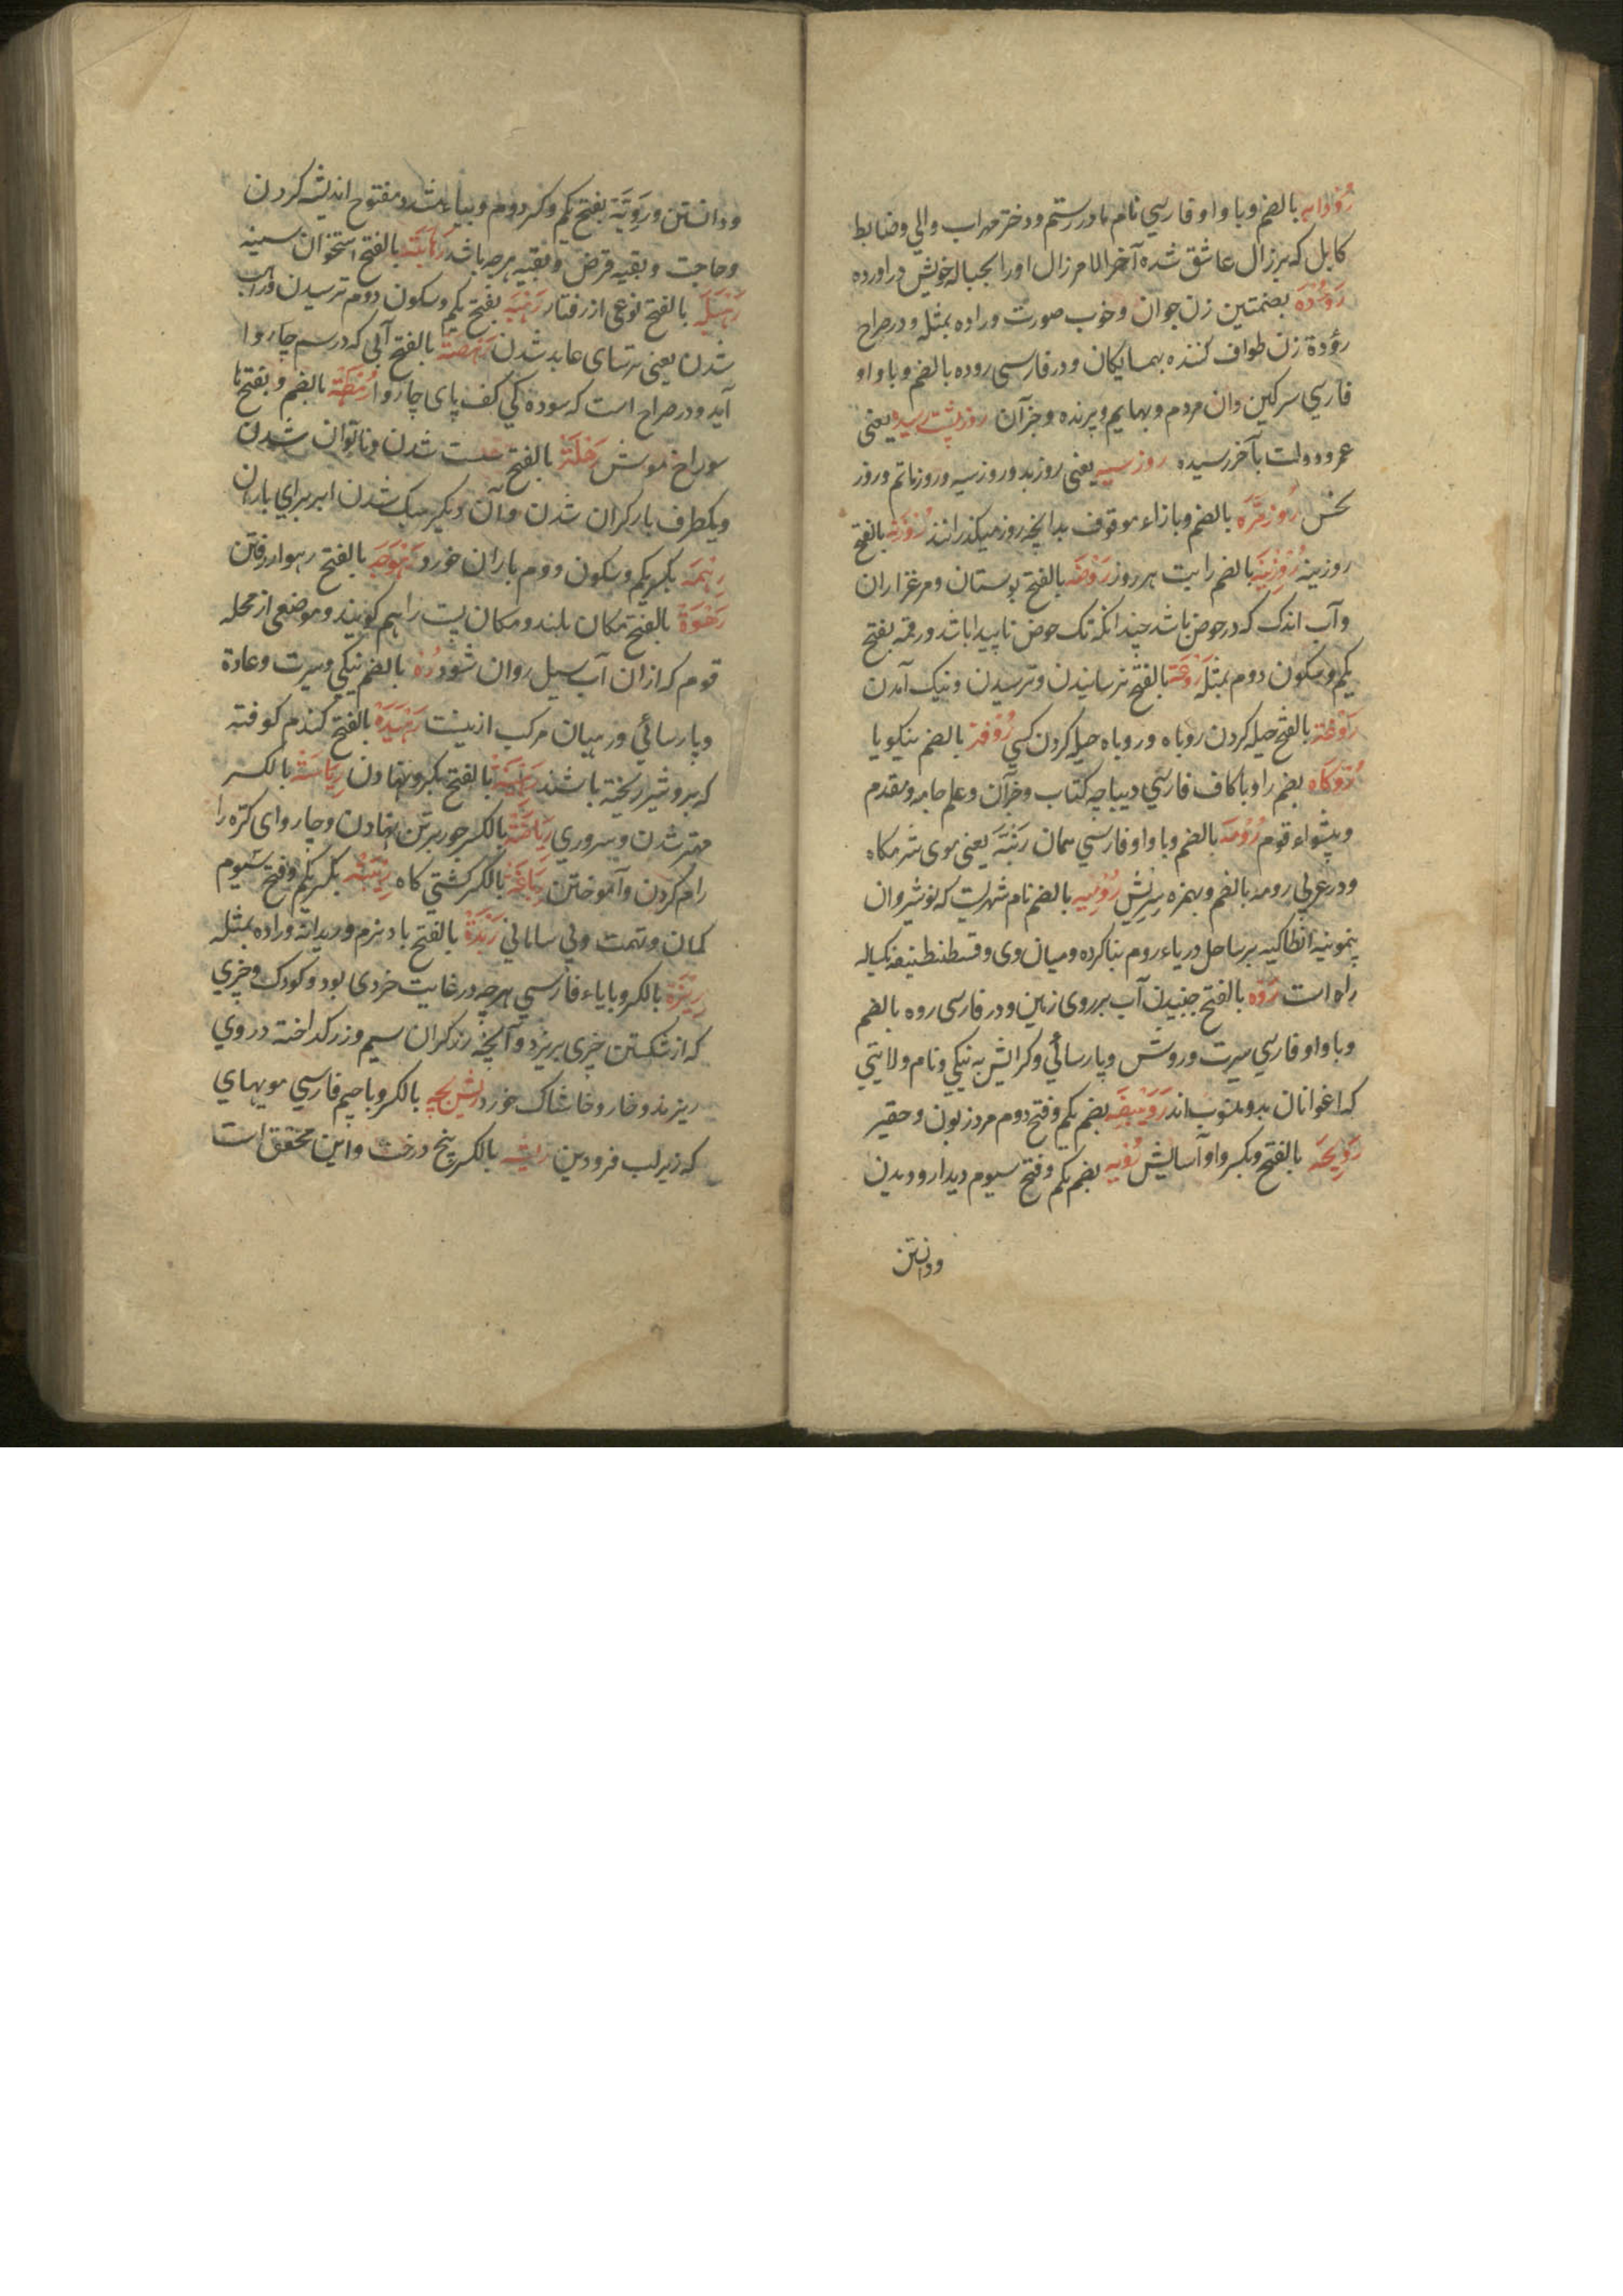 رُوْدابه بالضم و با واو فارسي نام مادر رستم و دختر مهراب والي و ضابط
كابل كه بر زال عاشق شده آخر الامر زال اورا بحباله خويش دراورده
رَؤُدَه بضمتين زن جوان و خوب صورت وراده بمثله و در صراح
رؤدة زن طواف كننده بهمسايكان و در فارسي روده بالضم و با واو
فارسي سركين دان مردم و بهايم و پرنده و جز آن روز پشت رسيده يعنى
عمر و دولت بآخر رسيده روز سيه يعنى روز بد و روز سيه و روز ماتم و روز
نحس رُوزمَرَّه بالضم و با زاء موقوف بدانچه روز ميكذرانند رُوْزَنه بالفتح
روزينه رُوْزِيْنَه بالضم راتبت هر روز رَوْضَه بالفتح بوستان و مرغزاران
و آب اندك كه در حوض باشد چندانكه تك حوض ناپيدا باشد و رقمه بفتح
يكم و سكون دوم بمثله رَوْعَة بالفتح ترسانيدن و ترسيدن و نيك آمدن
رَوْغَة بالفتح حيله كردن روباه و روباه حيله كردن كسي رُوْقَة بالضم نيكويا
رُوكاه بضم را و با كاف فارسي ديباچه كتاب و جز آن و علم جامه و مقدم
و پيشواء قوم رُوْمَه بالضم و با واو فارسي همان رَنْبَه يعنى موى شرمكاه
و در عربي رومه بالضم و بهمزه سريش رُوْمِيَه بالضم نام شهريست كه نوشيروان
بنمونيه انطاكيه بر ساحل درياء روم بنا كرده و ميان وى و قسطنطنيه يكساله
راه است رَوْه بالفتح جنبيدن آب بر روى زمين و در فارسى روه بالضم
و با واو فارسي سيرت و روش و پارسائي و كرايش به نيكي و نام ولايتي
كه افغانان بدو منسوب‌اند رُوَيْبِضَه بضم يكم و فتح دوم مرد زبون و حقير
رَوِيحَه بالفتح و بكسر واو آسايش رُؤيه بضم يكم و فتح سيوم ديدار و ديدن
ودانستن
ودانستن و رَوِيَّة بفتح يكم و كسر دوم و بياء مشدد مفتوح انديشه كردن
و حاجت و بقيه قرض و بقيه هر چه باشد رَهابَة بالفتح استخوان سينه
رَهْبَلَه بالفتح نوعى از رفتار رَهْبَه بفتح يكم و سكون دوم ترسيدن و راهب
شدن يعنى ترساى عابد شدن رَهْصَة بالفتح آبي كه در سم چاروا
آيد و در صراح است كه سوده كي كف پاى چاروا رُهَطَة بالضم و بفتح ها
سوراخ موش رَهْلَة بالفتح سست شدن و ناتوان شدن
و يكطرف بار كران شدن و آن ديكر سبك شدن ابر براي باران
رِهْمَه بكسر يكم و سكون دوم باران خورد رَهْوَجَه بالفتح رهوار رفتن
رَهْوَة بالفتح مكان بلند و مكان پست را هم كويند و موضعي از محله
قوم كه از ان آب سيل روان شود رُه بالضم نيكي و سيرت و عادة
و پارسائي و رميان مركب از ينست رَهِيدَة بالفتح كندم كوفته
كه برو شير ريخته باشند رَهِيْنَة بالفتح بكرو نهادن رِيَاسَة بالكسر
مهتر شدن و سروري رِيَاضَة بالكسر جور بر تن نهادن و چارواى كره را
رام كردن و آموختن رِيَاغَة بالكسر كشتي كاه رِيْبَة بكسر يكم و فتح سيوم
كمان و تهمت و بي ساماني رَيْدَة بالفتح باد نرم و ريدانه وراده بمثله
رِيزه بالكسر و با ياء فارسي هر چه در غايت خردى بود و كودك و چيزي
كه از شكستن چيزى بريزد و آنچه زركران سيم و زر كداخته در روي
ريزند و خار و خاشاك خورد رِيش‌بچه بالكسر و با جيم فارسي مويهاي
كه زير لب فرودين ريشه بالكسر بيخ درخت و اين محقق است